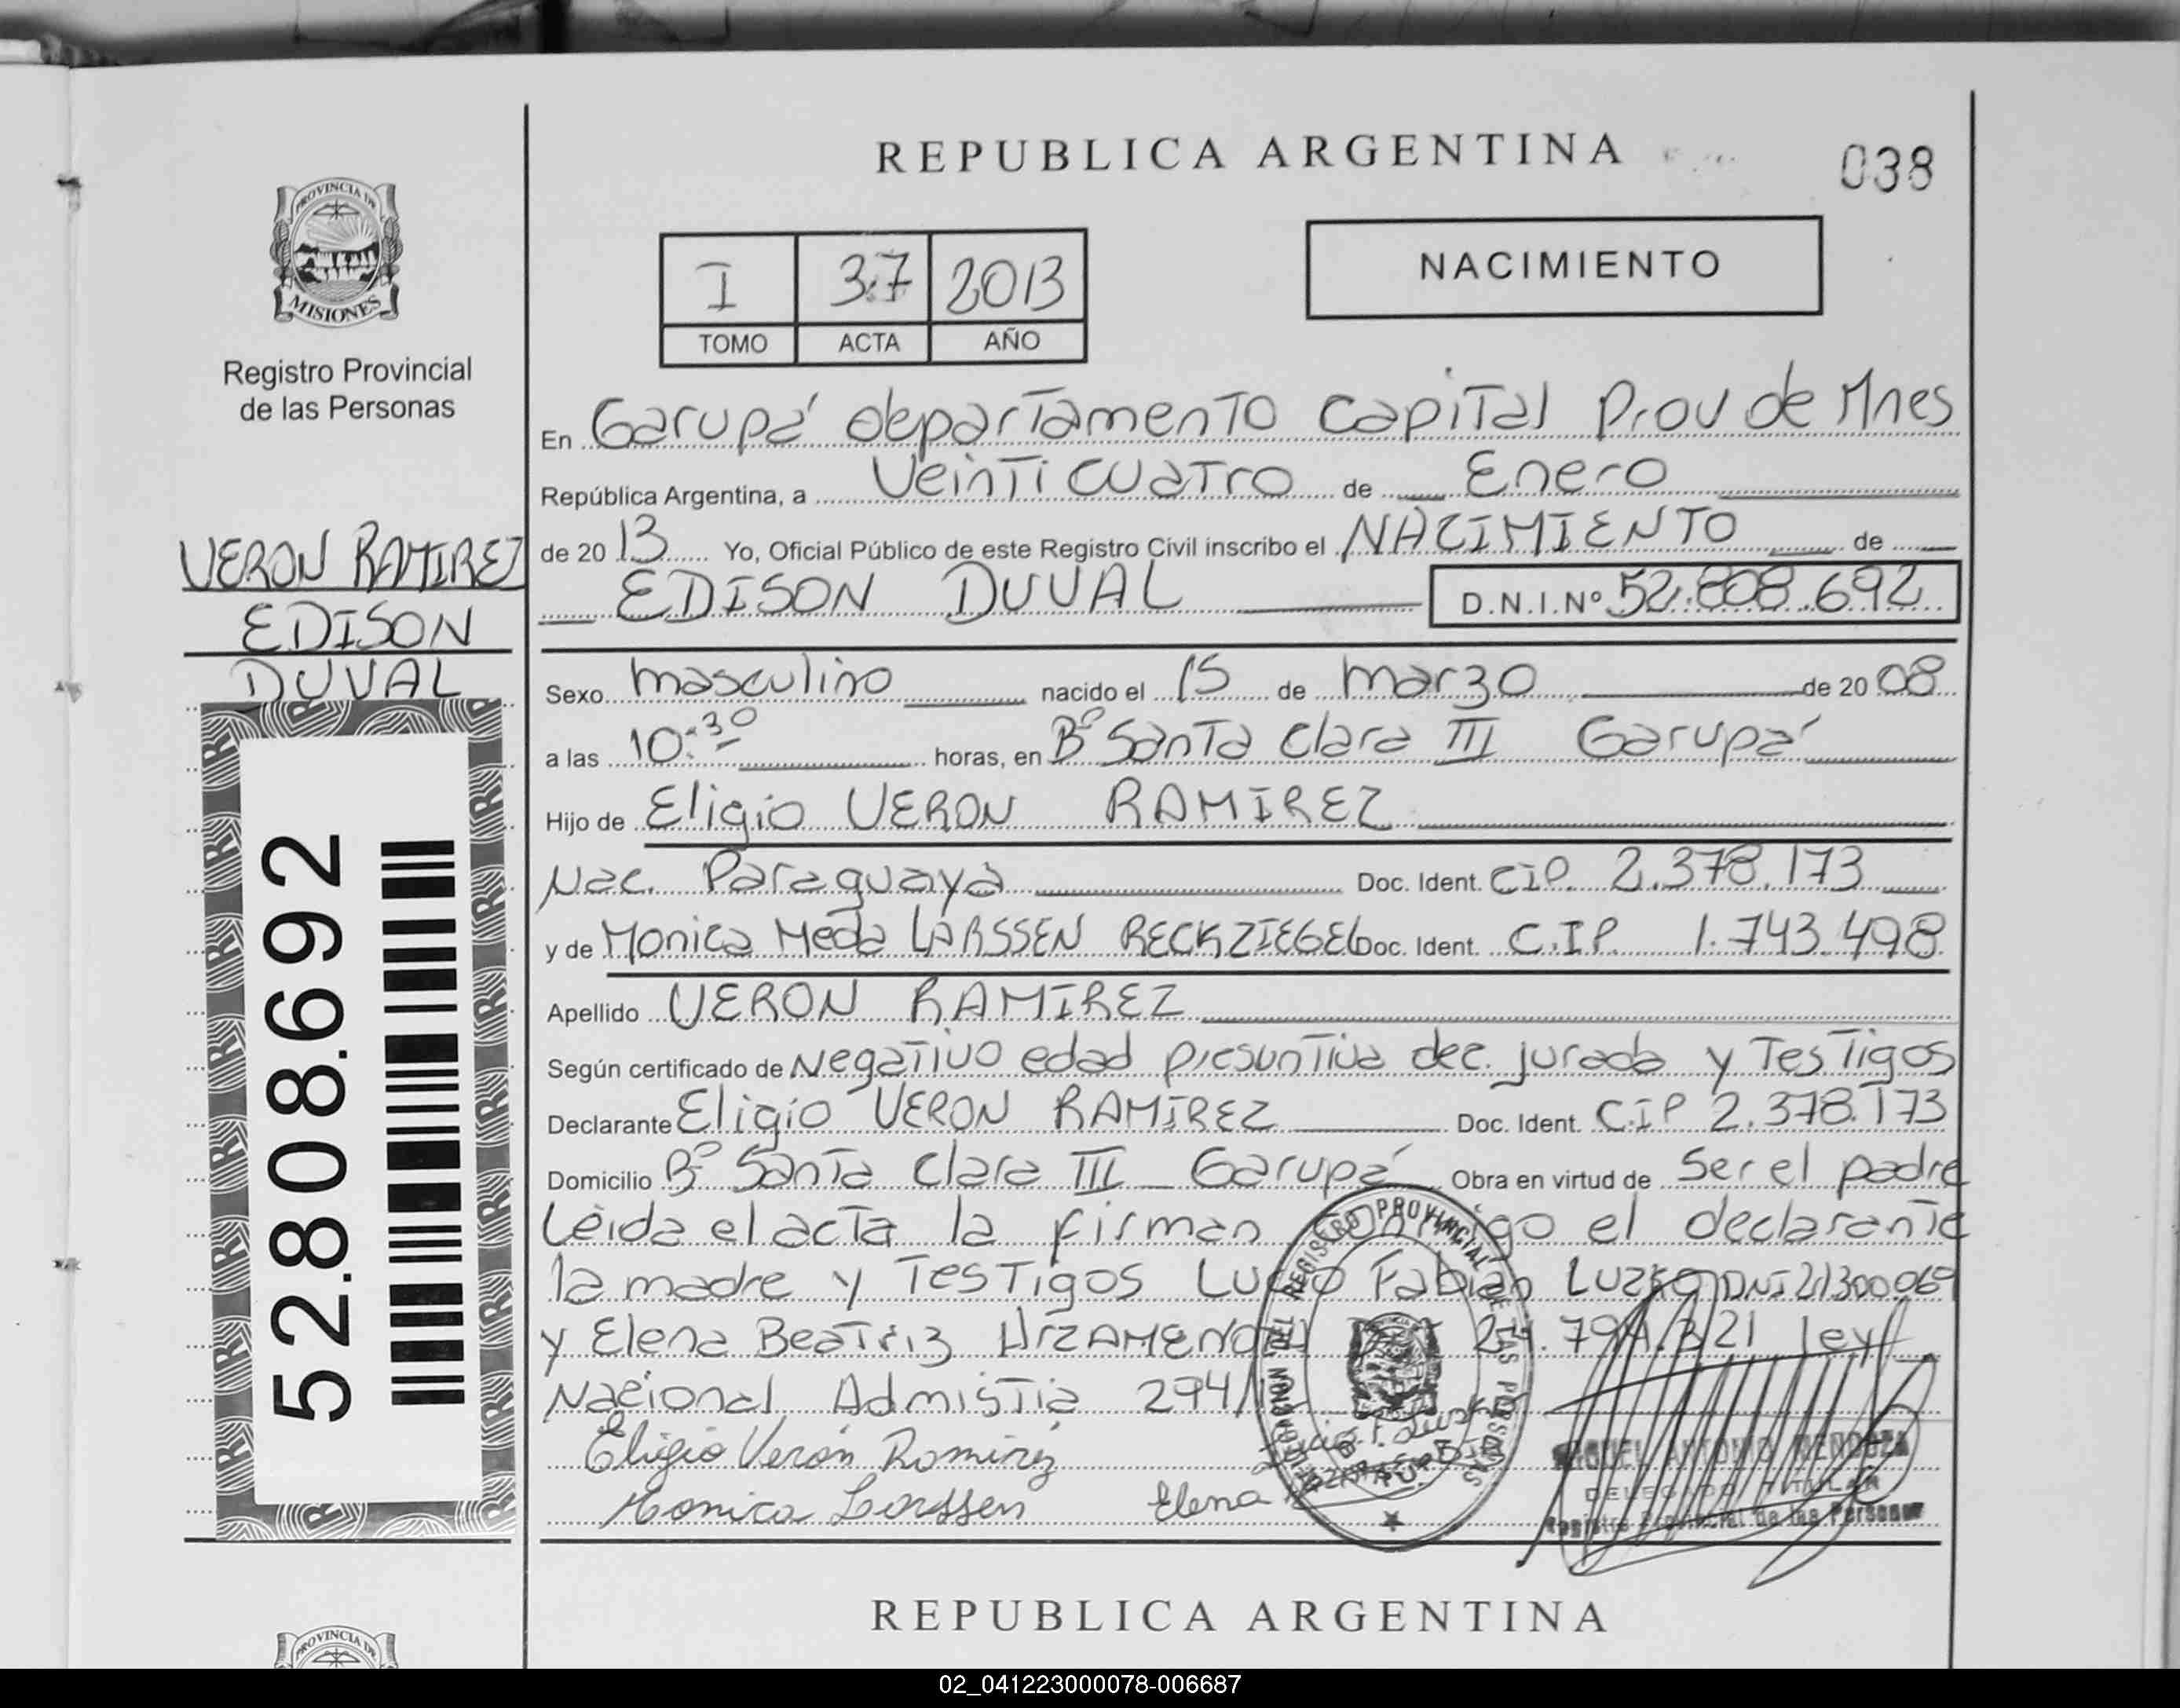 REPUBLICA ARGENTINA
038
PROVINCIA DE
MISIONES
Registro Provincial
de las Personas
I 37 2013
TOMO ACTA AÑO
NACIMIENTO
En Garupá departamento Capital Prov de Mnes
República Argentina, a Veinticuatro de Enero
de 20 13 Yo, Oficial Público de este Registro Civil inscribo el NACIMIENTO de
EDISON DUVAL D.N.I.Nº 52.808.692
VERON RAMIREZ
EDISON
DUVAL
52.808.692
Sexo masculino nacido el 15 de marzo de 20 08
a las 10:30 horas, en Bº Santa Clara III Garupá
Hijo de Eligio VERON RAMIREZ
Nac. Paraguaya Doc. Ident. CIP. 2.378.173
y de Monica Meda LARSSEN RECKZIEGEL Doc. Ident. C.I.P. 1.743.498
Apellido VERON RAMIREZ
Según certificado de Negativo edad presuntiva dec. jurada y Testigos
Declarante Eligio VERON RAMIREZ Doc. Ident. C.I.P 2.378.173
Domicilio Bº Santa Clara III - Garupá Obra en virtud de Ser el padre
Leida el acta la firman conmigo el declarante
la madre y Testigos Lucio Fabian DNI 21300069
y Elena Beatriz ley
Nacional Admistia 294/
Eligio Verón Ramirez
Monica Larssen Elena
REGISTRO PROVINCIAL DE LAS PERSONAS
MIGUEL ANTONIO MENDOZA
DELEGADO TITULAR
Registro Provincial de las Personas
REPUBLICA ARGENTINA
PROVINCIA DE
02_041223000078-006687